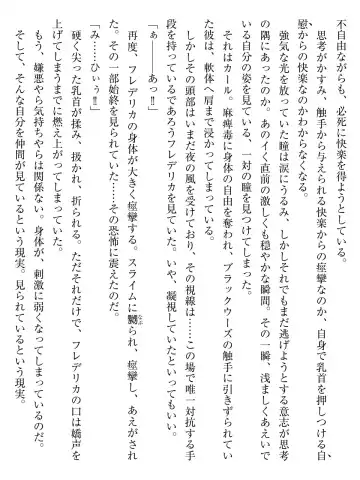 不自由ながらも、必死に快楽を得ようとしている。
思考がかすみ、触手から与えられる快楽からの痙攣なのか、自身で乳首を押しつける自
慰からの快楽なのかわからなくなる。
強気な光を放っていた瞳は涙にうるみ、しかしそれでもまだ逃げようとする意志が思考
の隅にあったのか。あのイく直前の激しくも穏やかな瞬間。その一瞬、浅ましくあえいで
いる自分の姿を見ている、一対の瞳を見つけてしまった。
それはカール。麻痺毒に身体の自由を奪われ、ブラックウーズの触手に引きずられてい
た彼は、軟体へ肩まで浸かってしまっている。
しかしその頭部はいまだ夜の風を受けており、その視線は……この場で唯一対抗する手
段を持っているであろうフレデリカを見ていた。いや、凝視していたといってもいい。
「ぁ――　あっ‼」
再度、フレデリカの身体が大きく痙攣する。スライムに嬲られ、痙攣し、あえがされ
た。その一部始終を見られていた……その恐怖に震えたのだ。
「み……ひぃぅ‼」
硬く尖った乳首が揉み、扱かれ、折られる。ただそれだけで、フレデリカの口は嬌声を
上げてしまうまでに燃え上がってしまっていた。
もう、嫌悪やら気持ちやらは関係ない。身体が、刺激に弱くなってしまっているのだ。
そして、そんな自分を仲間が見ているという現実。見られているという現実。